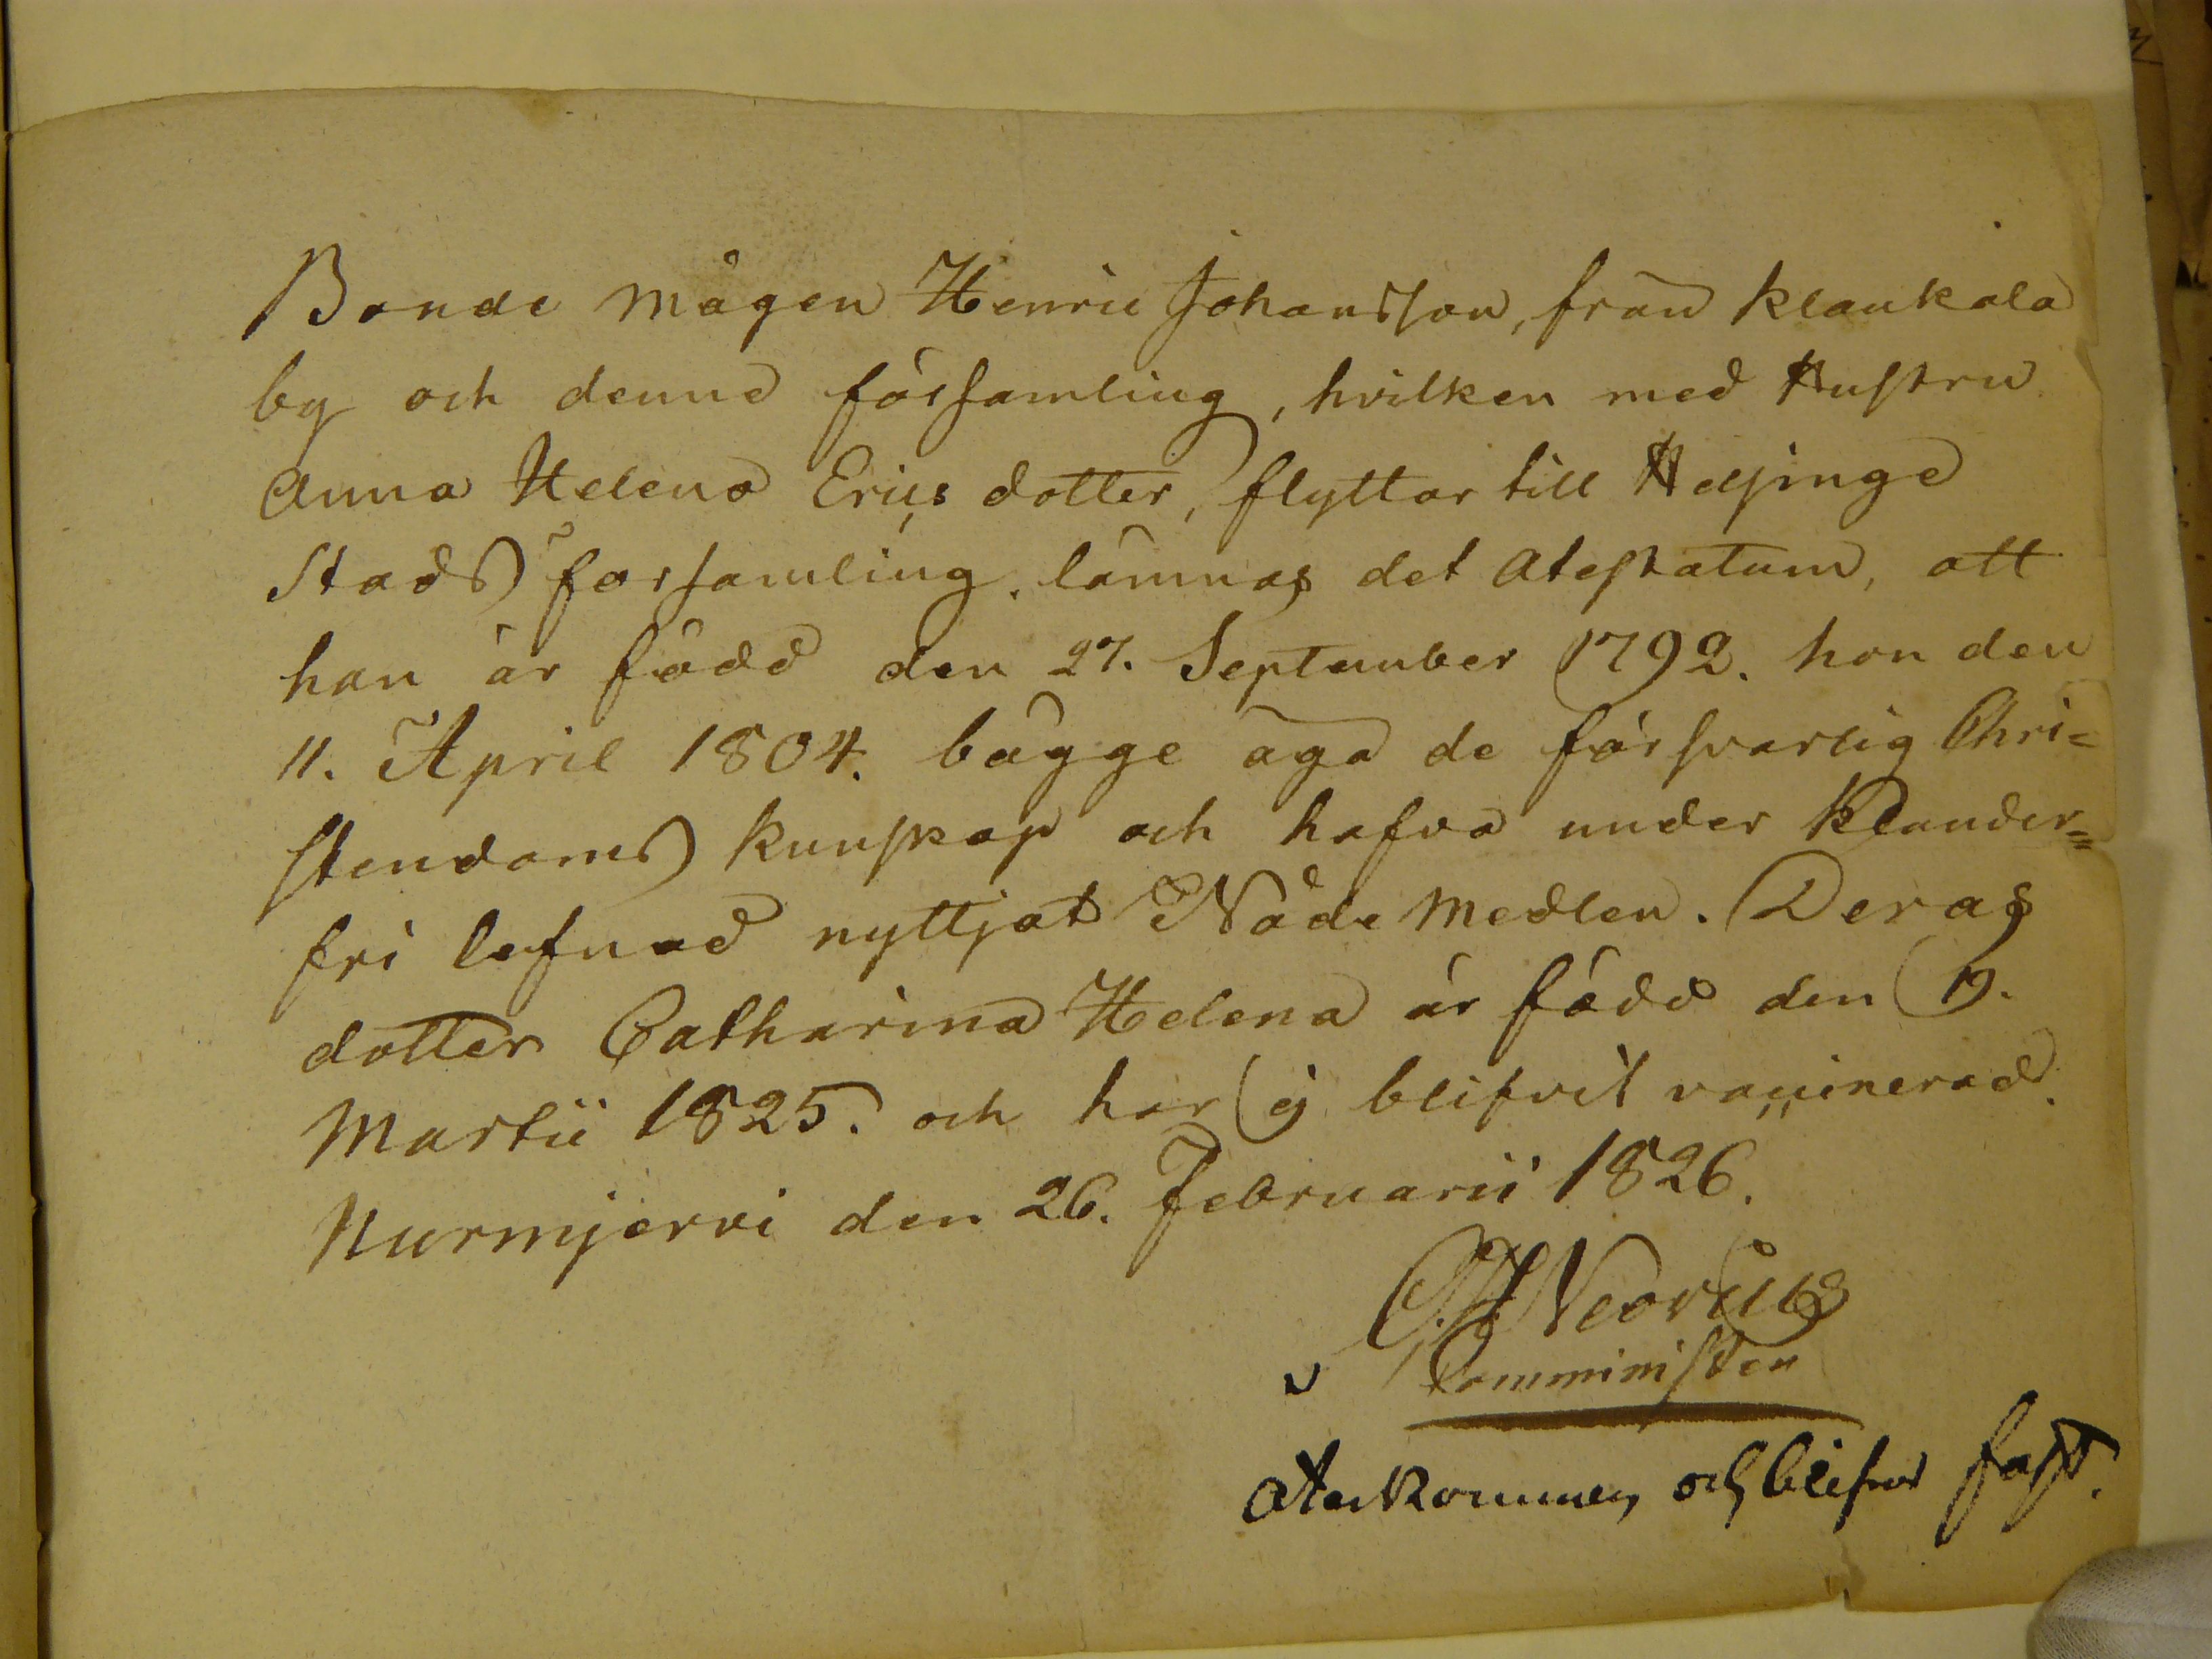 Bonde Mågen Henric Johansson, från Klaukala
by och denna församling, hvilken med Hustru
Anna Helena Erics dotter, flyttar till Helsinge
Stads församling, lämnas det Atestatum, att
han är född den 27. September 1792. hon den
11. April 1804. bägge äga de försvarlig Chri=
stendoms kunskap och hafva under klander=
fri lefnad nyttjat Nåde Medlen. Deras
dotter Catharina Helena är född den 19.
Martii 1825. och har ej blifvit vaccinerad.
Nurmjervi den 26. Februarii 1826.
Neovius
Comminister
Återkommen och blifver fast.